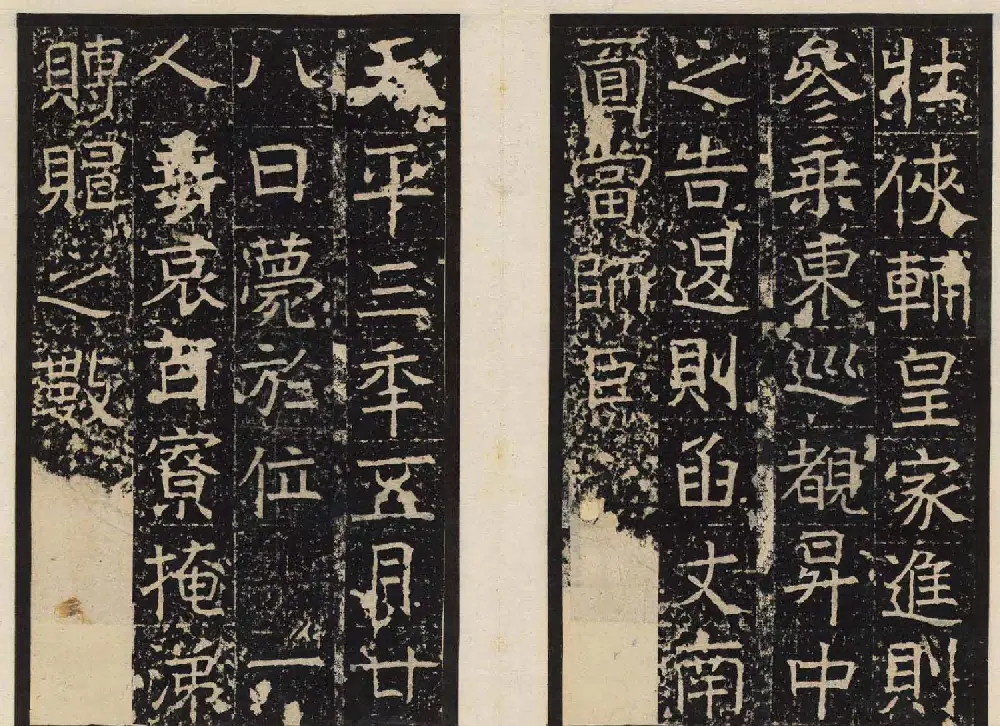 壯俠輔皇家進則
參乘東巡覩昇中
之告退則函丈南
面當師臣
天平三年五月廿
八日薨於位一
人垂哀百寮掩涕
賻賵之數